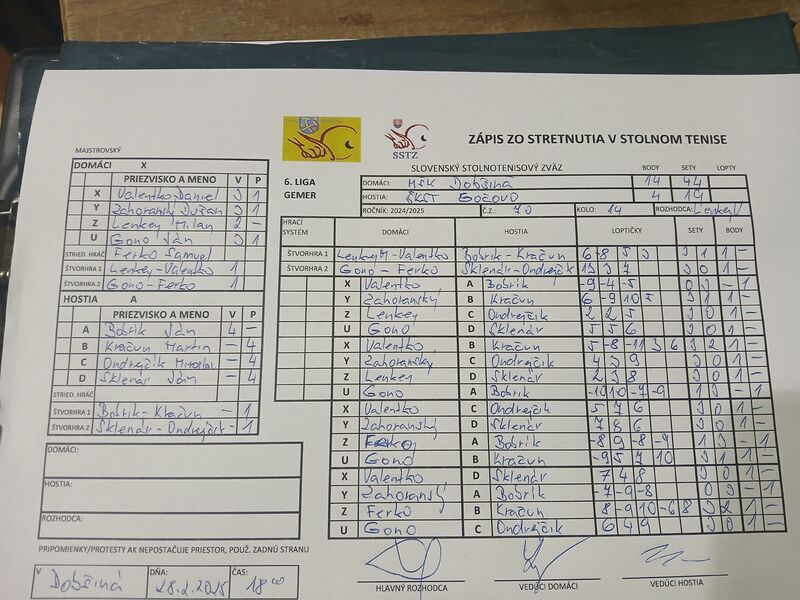 ZÁPIS ZO STRETNUTIA V STOLNOM TENISE
SSTZ
SLOVENSKÝ STOLNOTENISOVÝ ZVÄZ
6. LIGA
GEMER
BODY SETY LOPTY
DOMÁCI: MŠK Dobšiná 14 44
HOSTIA: ŠKST Gočovo 4 19
ROČNÍK: 2024/2025 Č.Z.: 70 KOLO: 14 ROZHODCA: Lenkey
MAJSTROVSKÝ
DOMÁCI X
PRIEZVISKO A MENO V P
X Valentko Daniel 3 1
Y Zahoranský Dušan 3 1
Z Lenkey Milan 2 -
U Gono Ján 3 1
STRIED. HRÁČ Ferko Samuel
ŠTVORHRA 1 Lenkey-Valentko 1
ŠTVORHRA 2 Gono-Ferko 1
HOSTIA A
PRIEZVISKO A MENO V P
A Bobrik Ján 4 -
B Kračun Martin - 4
C Ondrejčik Miroslav - 4
D Sklenár Ján - 4
STRIED. HRÁČ
ŠTVORHRA 1 Bobrik-Kračun - 1
ŠTVORHRA 2 Sklenár-Ondrejčik - 1
DOMÁCI:
HOSTIA:
ROZHODCA:
PRIPOMIENKY/PROTESTY AK NEPOSTAČUJE PRIESTOR, POUŽ. ZADNÚ STRANU
V Dobšiná DŇA: 28.2.2025 ČAS: 18 00
HRACÍ SYSTÉM DOMÁCI HOSTIA LOPTIČKY SETY BODY
ŠTVORHRA 1 Lenkey M-Valentko Bobrik-Kračun 6 -8 5 3 3 1 1 -
ŠTVORHRA 2 Gono-Ferko Sklenár-Ondrejčik 13 3 7 3 0 1 -
X Valentko A Bobrik -9 -4 -5 0 3 - 1
Y Zahoranský B Kračun 6 -9 10 5 3 1 1 -
Z Lenkey C Ondrejčik 2 2 5 3 0 1 -
U Gono D Sklenár 5 5 6 3 0 1 -
X Valentko B Kračun 5 -8 -11 3 6 3 2 1 -
Y Zahoranský C Ondrejčik 4 3 9 3 0 1 -
Z Lenkey D Sklenár 2 3 8 3 0 1 -
U Gono A Bobrik -10 10 -7 -9 1 3 - 1
X Valentko C Ondrejčik 5 7 6 3 0 1 -
Y Zahoranský D Sklenár 7 8 6 3 0 1 -
Z Ferko A Bobrik -8 9 -8 -9 1 3 - 1
U Gono B Kračun -9 5 7 10 3 1 1 -
X Valentko D Sklenár 7 4 8 3 0 1 -
Y Zahoranský A Bobrik -7 -9 -8 0 3 - 1
Z Ferko B Kračun 8 -9 10 -6 8 3 2 1 -
U Gono C Ondrejčik 6 4 9 3 0 1 -
HLAVNÝ ROZHODCA VEDÚCI DOMÁCI VEDÚCI HOSTIA